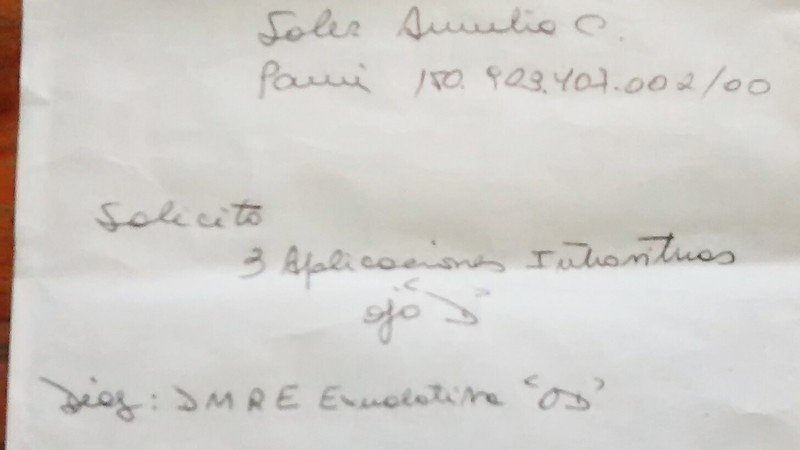 Soler Aurelio C.
Pami 150.903.407.002/00
Solicito
3 Aplicaciones Intravitreas
ojo "D"
Diag: DMRE Exudativa "OD"